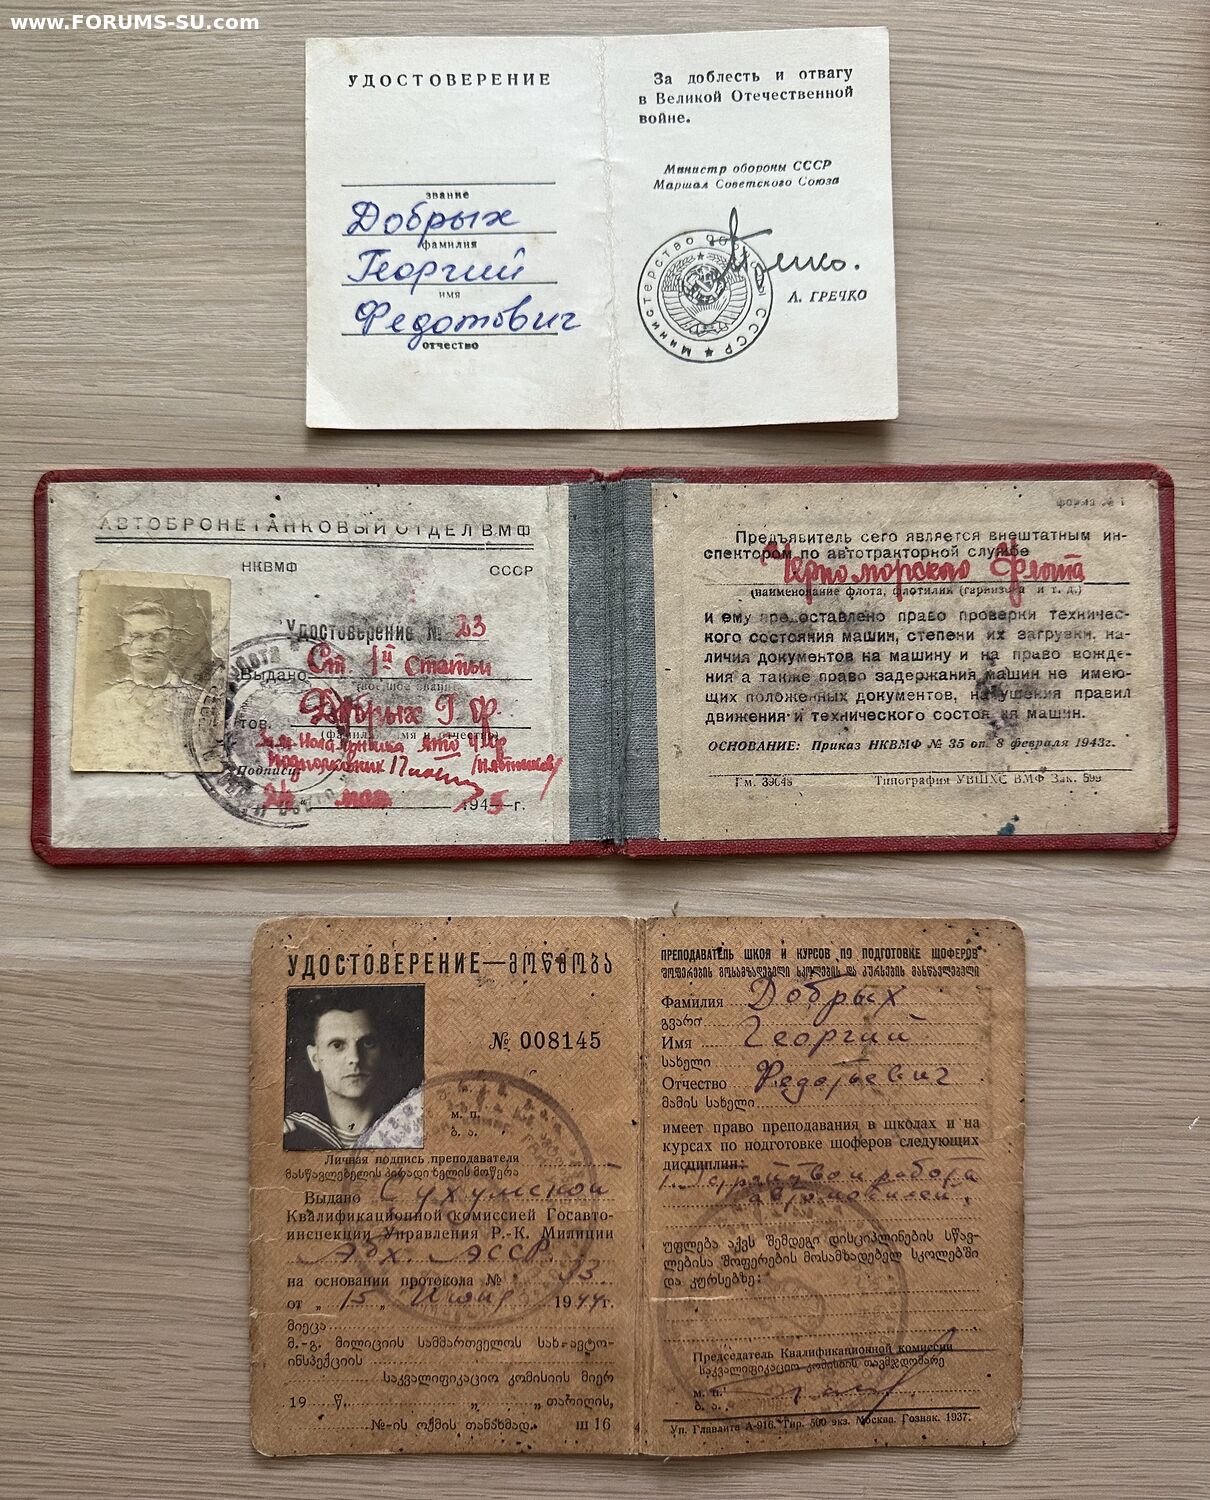 www.FORUMS-SU.com
УДОСТОВЕРЕНИЕ
звание
Добрых
фамилия
Георгий
имя
Федотович
отчество
За доблесть и отвагу
в Великой Отечественной
войне.
Министр обороны СССР
Маршал Советского Союза
А. ГРЕЧКО
Министерство обороны СССР
АВТОБРОНЕТАНКОВЫЙ ОТДЕЛ ВМФ
НКВМФ СССР
Удостоверение № 23
Выдано Ст 1й статьи
(военное звание)
тов. Добрых Г. Ф.
(фамилия, имя и отчество)
Подполковник
Подпись
24 мая 1945 г.
форма № 1
Предъявитель сего является внештатным ин-
спектором по автотракторной службе
Черноморского Флота
(наименование флота, флотилии (гарнизона и т. д.)
и ему предоставлено право проверки техничес-
кого состояния машин, степени их загрузки, на-
личия документов на машину и на право вожде-
ния а также право задержания машин не имею-
щих положенных документов, нарушения правил
движения и технического состояния машин.
ОСНОВАНИЕ: Приказ НКВМФ № 35 от 8 февраля 1943г.
Гм. 39648 Типография УВШХС ВМФ Зак. 599
УДОСТОВЕРЕНИЕ—მოწმობა
№ 008145
м. п.
ბ. ა.
Личная подпись преподавателя
მასწავლებელის პირადი ხელის მოწერა
Выдано Сухумской
Квалификационной комиссией Госавто-
инспекции Управления Р.-К. Милиции
Абх. АССР.
на основании протокола № 33
от „ 15 „ Июня 1944г.
მიეცა
მ.-გ. მილიციის სამმართველოს სახ-ავტო-
ინსპექციის
საკვალიფიკაციო კომისიის მიერ
19 წ. „ „ თარიღის,
№-ის ოქმის თანახმად. ш 16
ПРЕПОДАВАТЕЛЬ ШКОЛ И КУРСОВ ПО ПОДГОТОВКЕ ШОФЕРОВ
შოფერების მოსამზადებელ სკოლების და კურსების მასწავლებელი
Фамилия Добрых
გვარი
Имя Георгий
სახელი
Отчество Федотьевич
მამის სახელი
имеет право преподавания в школах и на
курсах по подготовке шоферов следующих
дисциплин:
1. Устройство и работа
автомобилей.
უფლება აქვს შემდეგი დისციპლინების სწავ-
ლებისა შოფერების მოსამზადებელ სკოლებში
და კურსებზე:
Председатель Квалификационной комиссии
საკვალიფიკაციო კომისიის თავმჯდომარე
м. п.
ბ. ა.
Уп. Главлита А-916. Тир. 500 экз. Москва. Гознак. 1937.